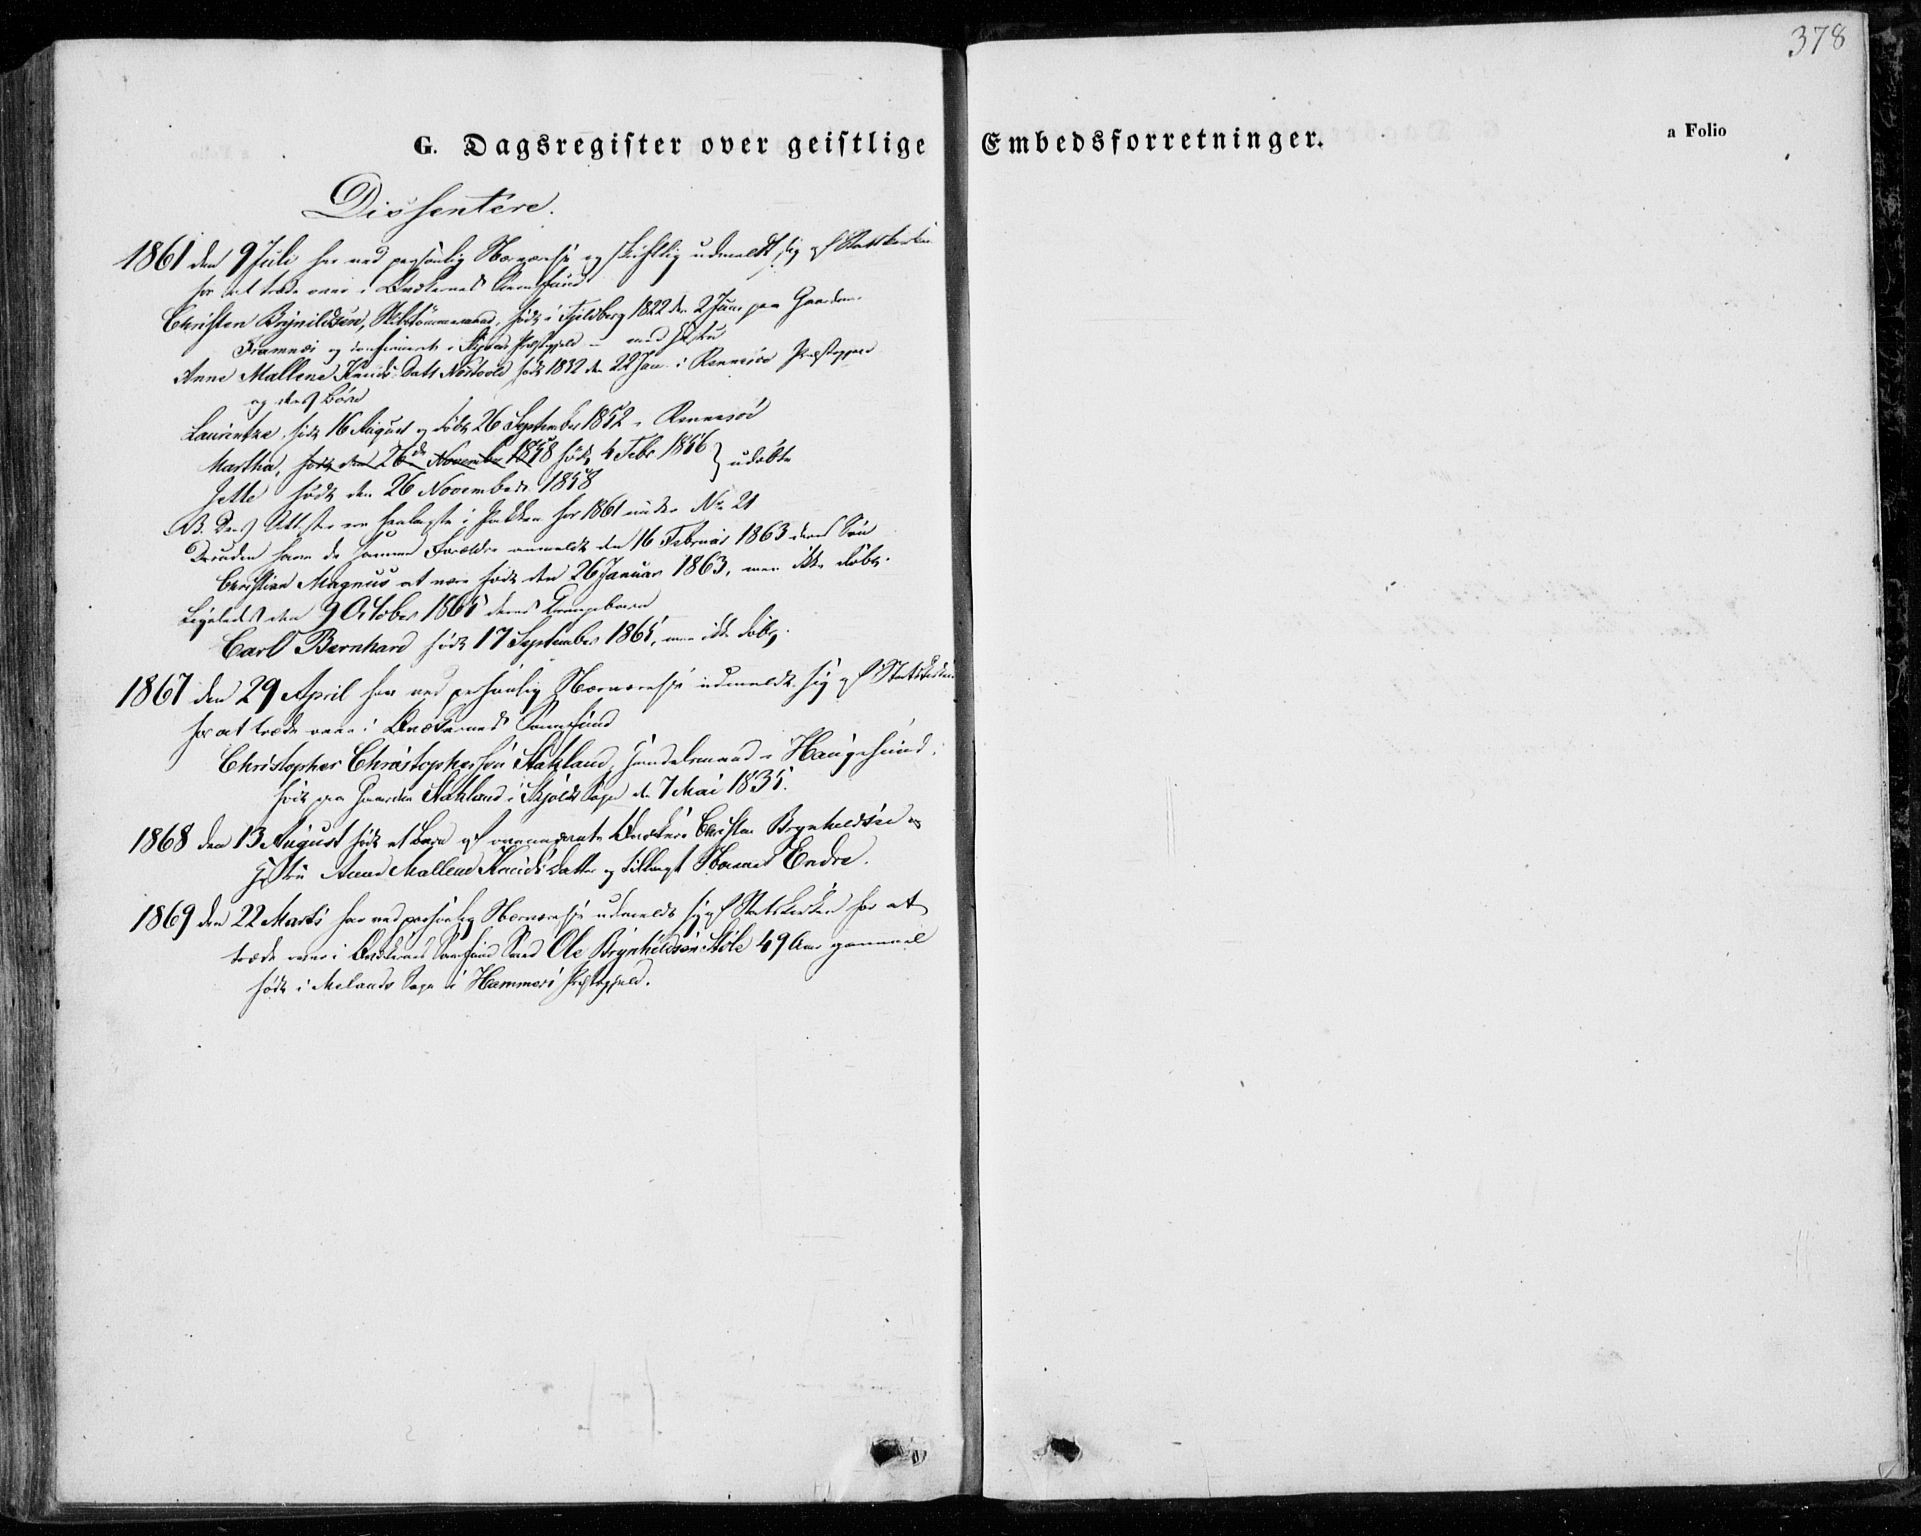 378
G. Dagsregister over geistlige Embedsforretninger.
a Folio
Dissentere.
1861 den 9 Juli har ved personlig Nærværelse og skriftlig udmeldt sig af Statskirken
for at træde over i Qvækernes Samfund
Christen Brynildsen, Skibstømmermand, født i Fjeldberg 1822 den 2 Juni paa Gaarden
Framnæs og confirmeret i Præstegjeld – med Hustru
Anne Mallene Knuds Datt født 1832 den 22 Jan i Rennesøe Præstegjeld
og deres Børn
Laurentze, født 16 August og døbt 26 September 1852 i Rennesöe
Martha, født den 26de November 1858 født 4 Febr 1856 } udøbte
Jette født den 26 November 1858
NB. Deres Attester ere henlagte i Pakken for 1861 under No 21
Desuden have de samme Forældre anmeldt den 16 Februar 1863 deres Søn
Christian Magnus at være født den 26 Januar 1863, men ikke døbt.
Ligeledes den 9 October 1865 deres Drengebarn
Carl Bernhard født 17 September 1865, men ikke døbt.
1867 den 29 April har ved personlig Nærværelse udmeldt sig af Statskirken
for at træde over i Qvækernes Samfund
Christopher Christophersön Stakland, Handelsmand i Haugesund,
født paa Gaarden Stakland i Skjolds Sogn den 7 Mai 1835.
1868 den 13 August født et Barn af ovennævnte Qvækere Christen Brynheldsen og
Hustru Anne Mallene Knuds Datter og tillagt Navnet Endre.
1869 den 22 Marts har ved personlig Nærværelse udmeldt sig af Statskirken for at
træde over i Qvækernes Samfund Ole Brynhildsen 49 Aar gammel
født i Melands Sogn i Hammers Præstegjeld.